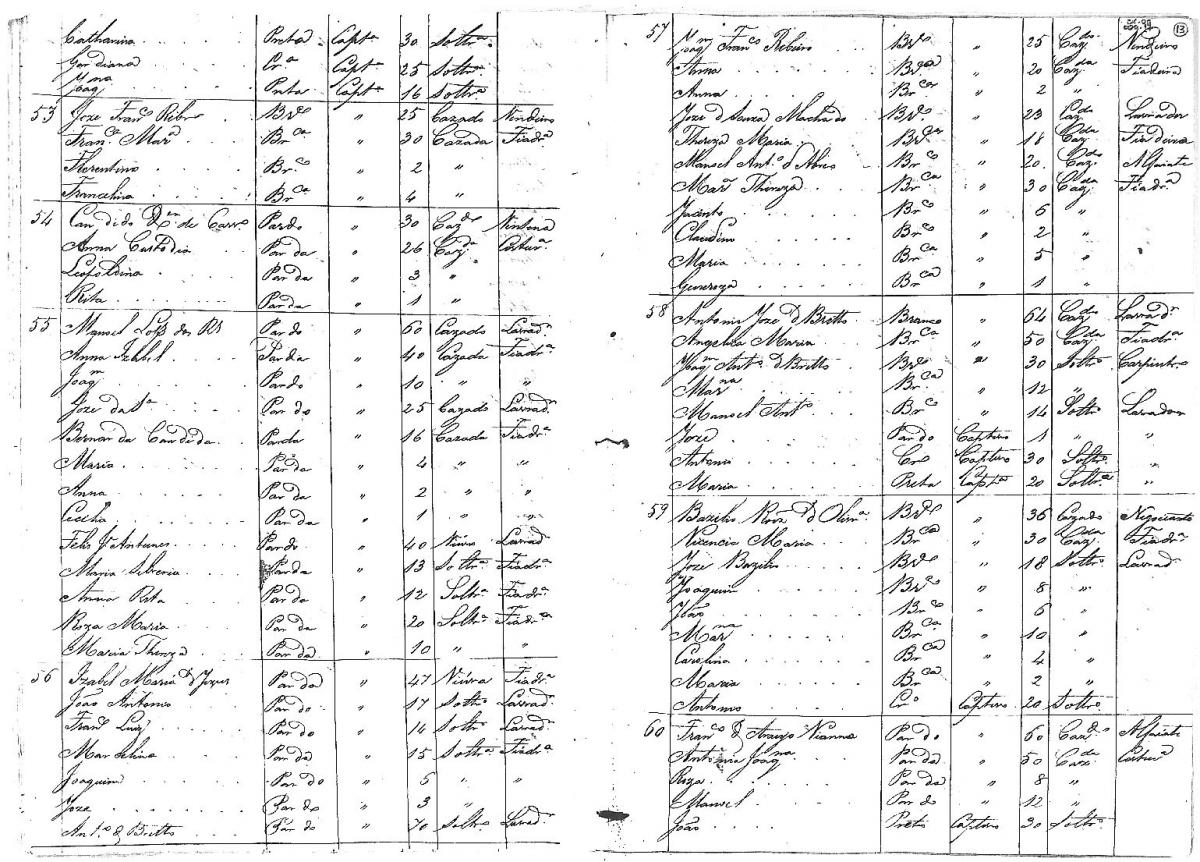 Catharina Preta Captª 30 Soltrª
Gordiana Crª Captª 25 Soltrª
Joaqna Preta Captª 16 Soltrª
53 Joze Franco Ribro Brco 25 Cazado Vendeiro
Franca Mará Brca " 30 Cazada Fiadrª
Florentino Brco " 2 "
Francelina Brca " 4 "
54 Candido de Pardo " 30 Cazdo
Anna Custodia Parda " 26 Cazda Costurª
Leopoldina Parda " 3 "
Rita Parda " 1 "
55 Manoel dos Rs Pardo " 60 Cazado Lavradr
Anna Izabel Parda " 40 Cazada Fiadrª
Joaqm Pardo " 10 " "
Joze da Sª Pardo " 25 Cazado Lavradr
Bernarda Candida Parda " 16 Cazada Fiadrª
Maria Parda " 4 " "
Anna Parda " 2 " "
Cecilia Parda " 1 " "
Felis Antunes Pardo " 40 Viuvo Lavradr
Maria Parda " 13 Soltrª Fiadrª
Anna Rita Parda " 12 Soltrª Fiadrª
Roza Maria Parda " 20 Soltrª Fiadrª
Maria Thereza Parda " 10 " "
56 Izabel Maria d Jezus Parda " 47 Viuva Fiadrª
João Antonio Pardo " 17 Soltro Lavradr
Franco Luiz Pardo " 14 Soltro Lavradr
Marcelina Parda " 15 Soltrª Fiadrª
Joaquim Pardo " 5 " "
Joze Pardo " 3 "
Anto d Britto Pardo " 70 Soltro Lavradr
13
57 Joaqm Franco Ribeiro Brco " 25 Cazdo Vendeiro
Anna Brca " 20 Cazda Fiadeira
Anna Brca " 2 "
Joze d Souza Machado Brco " 23 Cazdo Lavrador
Thereza Maria Brca " 18 Cazda Fiadeira
Manoel Anto d'Abreo Brco " 20 Cazdo Alfaiate
Mará Thereza Brca " 30 Cazda Fiadrª
Jacinto Brco " 6 "
Claudino Brco " 2 "
Maria Brca " 5 "
Genereza Brca " 1 "
58 Antonio Joze d Britto Branco " 64 Cazdo Lavradr
Angelica Maria Brca " 50 Cazda Fiadrª
Joaqm Anto d Britto Brco " 30 Soltro Carpintro
Marna Brca " 12 "
Manoel Anto Brco " 14 Soltro Lavrador
Joze Pardo Captivo 1 " "
Antonio Cro Captivo 30 Soltro "
Maria Preta Captª 20 Soltrª "
59 Bazilio Roiz d Olivrª Brco " 36 Cazado Negociante
Vicencia Maria Brca " 30 Cazda Fiadrª
Joze Bazilio Brco " 18 Soltro Lavradr
Joaquim Brco " 8 "
João Brco " 6 "
Marna Brca " 10 "
Carolina Brca " 4 "
Maria Brca " 2 "
Antonio Cro Captivo 20 Soltro
60 Franco d Araujo Vianna Pardo " 60 Cazdo Alfaiate
Antonia Joaqna Parda " 50 Cazda Costurª
Roza Parda " 8 "
Manoel Pardo " 12 "
João Preto Captivo 30 Soltro